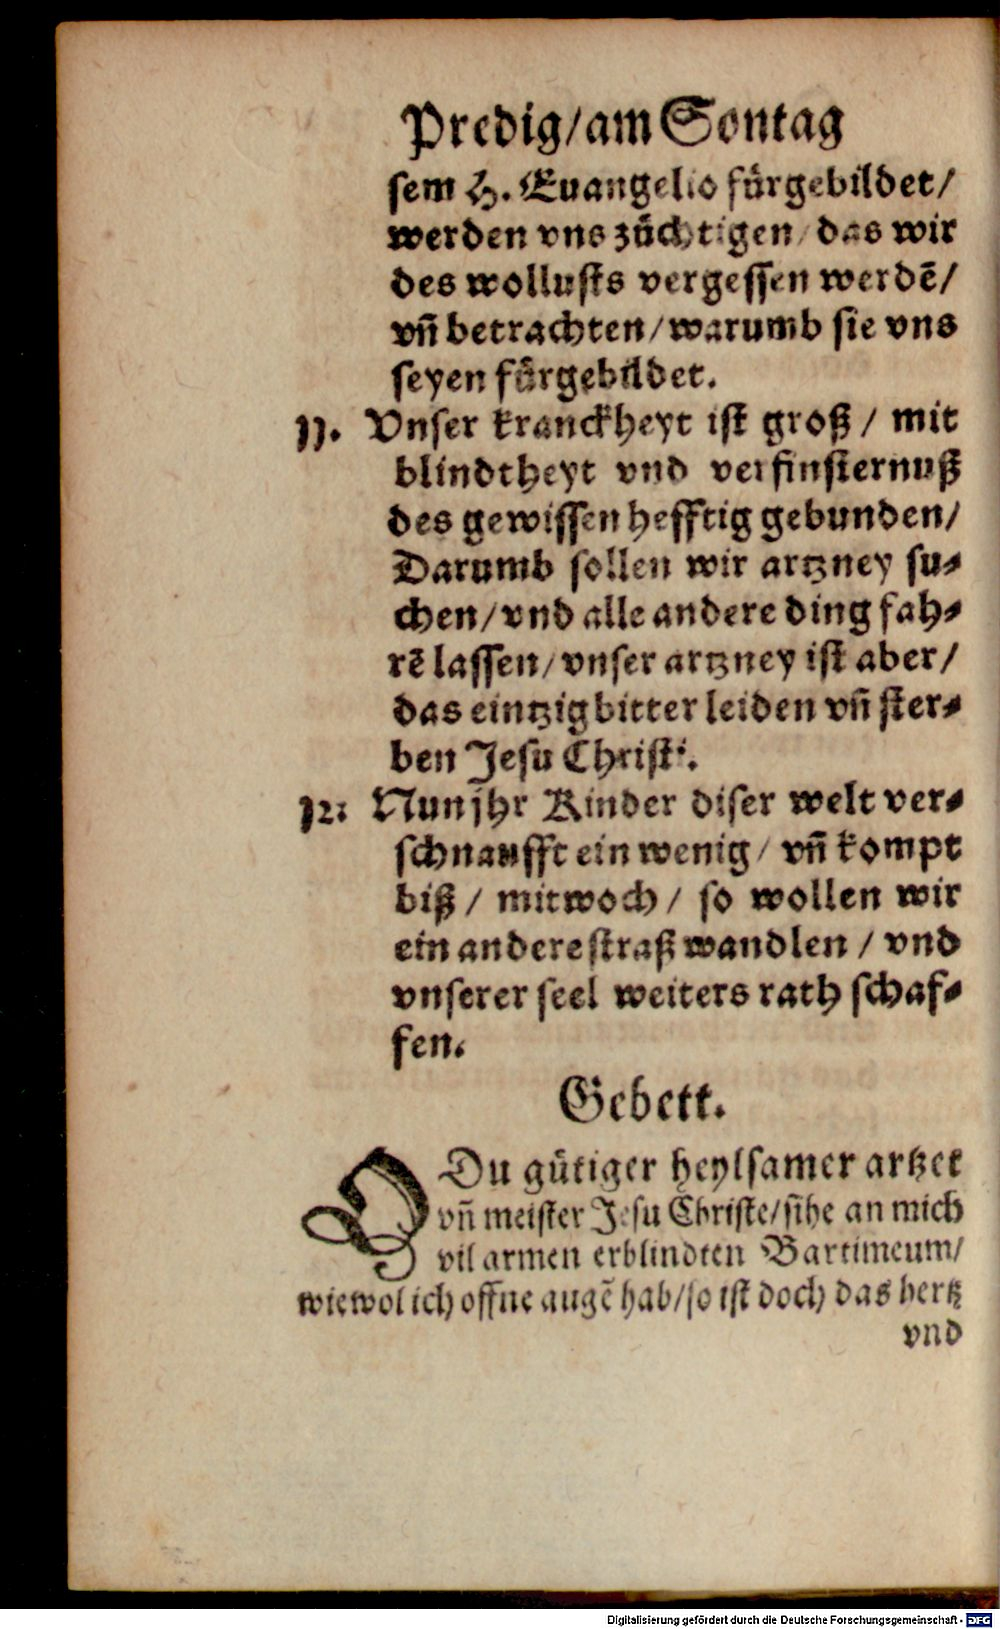 Predig/am Sontag
sem H. Euangelio fürgebildet/
werden vns züchtigen/das wir
des wollusts vergessen werdē/
vñ betrachten/warumb sie vns
seyen fürgebildet.
11. Vnser kranckheyt ist groß / mit
blindtheyt vnd verfinsternuß
des gewissen hefftig gebunden/
Darumb sollen wir artzney su⸗
chen/vnd alle andere ding fah⸗
rē lassen/vnser artzney ist aber/
das eintzig bitter leiden vñ ster⸗
ben Jesu Christi.
12: Nun jhr Kinder diser welt ver⸗
schnaufft ein wenig/ vñ kompt
biß / mitwoch / so wollen wir
ein andere straß wandlen / vnd
vnserer seel weiters rath schaf⸗
fen.
Gebett.
O Du gütiger heylsamer artzet
vñ meister Jesu Christe/sihe an mich
vil armen erblindten Bartimeum/
wiewol ich offne augē hab/so ist doch das hertz
vnd
Digitalisierung gefördert durch die Deutsche Forschungsgemeinschaft - DFG